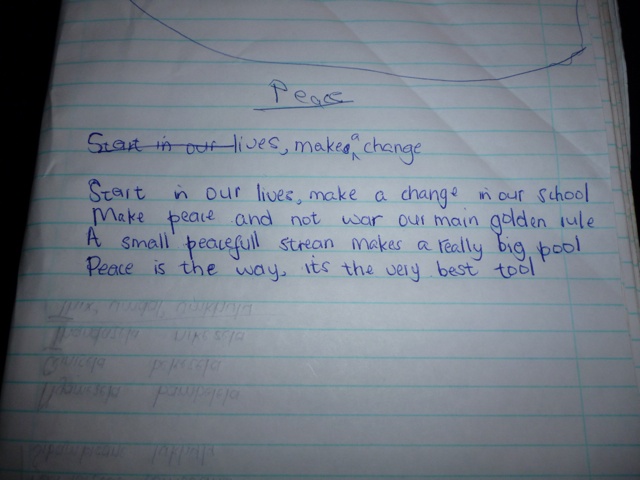 Peace
Start in our lives, makes a change
Start in our lives, make a change in our school
Make peace and not war our main golden rule
A small peacefull strean makes a really big pool
Peace is the way, its the very best tool